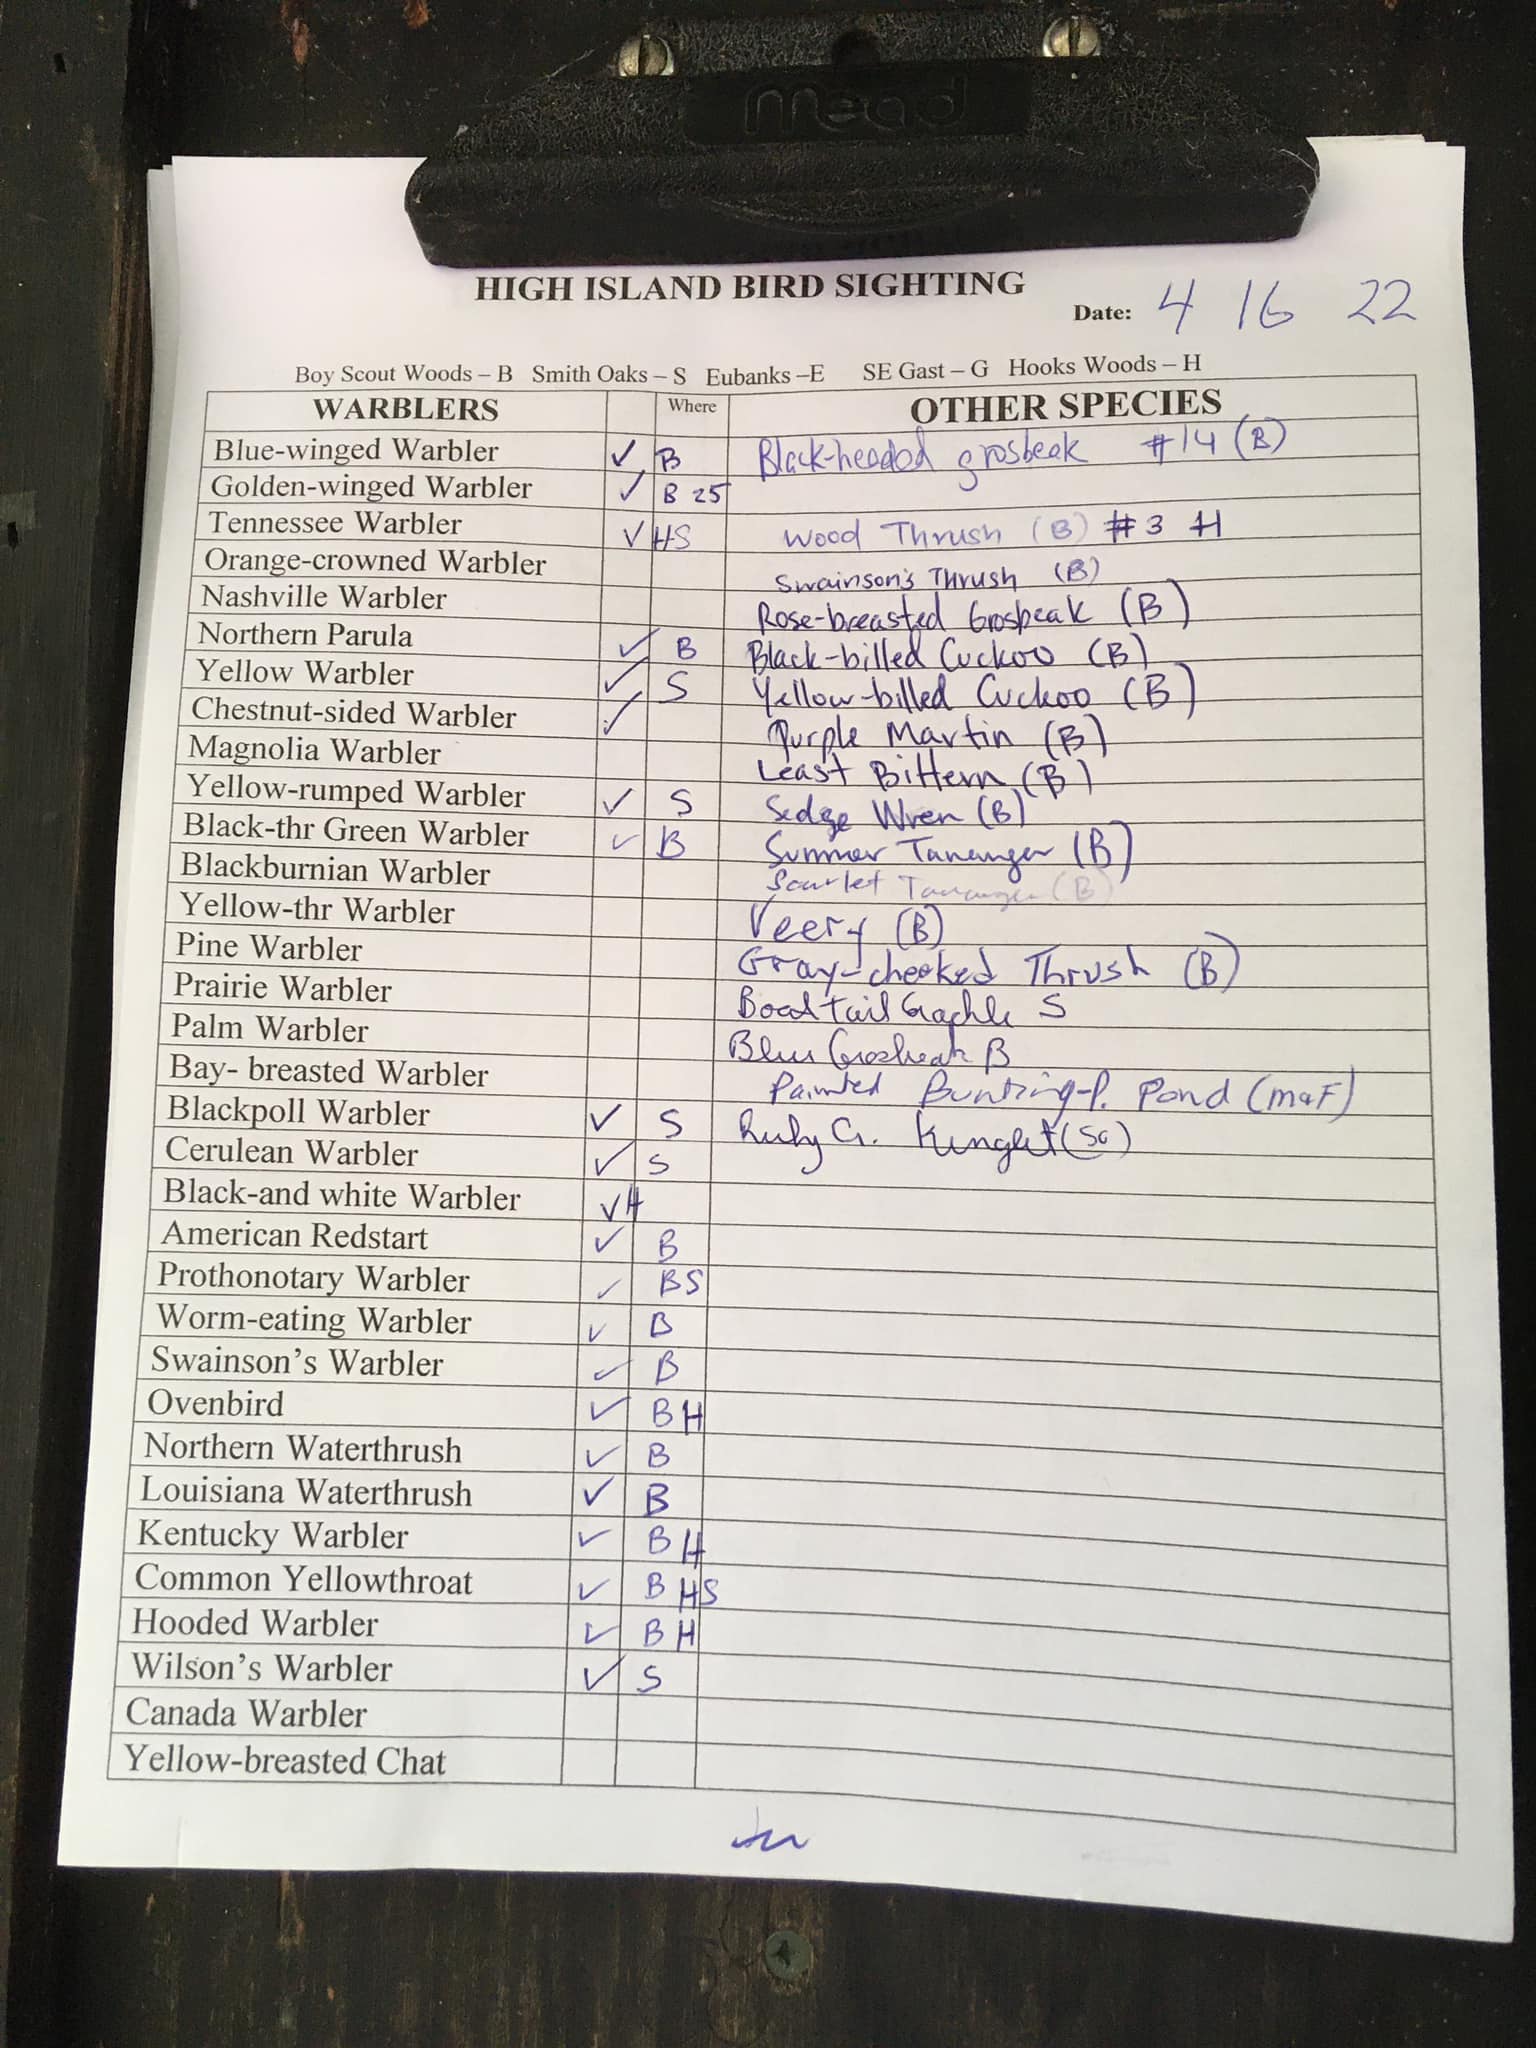 mead
HIGH ISLAND BIRD SIGHTING
Date: 4 16 22
Boy Scout Woods – B Smith Oaks – S Eubanks –E SE Gast – G Hooks Woods – H
WARBLERS Where OTHER SPECIES
Blue-winged Warbler ✓ B Black-headed grosbeak #14 (B)
Golden-winged Warbler ✓ B 25
Tennessee Warbler ✓ HS Wood Thrush (B) #3 H
Orange-crowned Warbler Swainson's Thrush (B)
Nashville Warbler Rose-breasted Grosbeak (B)
Northern Parula ✓ B Black-billed Cuckoo (B)
Yellow Warbler ✓ S Yellow-billed Cuckoo (B)
Chestnut-sided Warbler ✓ Purple Martin (B)
Magnolia Warbler Least Bittern (B)
Yellow-rumped Warbler ✓ S Sedge Wren (B)
Black-thr Green Warbler ✓ B Summer Tananger (B)
Blackburnian Warbler Scarlet Tananger (B)
Yellow-thr Warbler Veery (B)
Pine Warbler Gray-cheeked Thrush (B)
Prairie Warbler S
Palm Warbler Blue Grosbeak B
Bay- breasted Warbler Painted Bunting-P. Pond (M&F)
Blackpoll Warbler ✓ S Ruby C. Kinglet (SG)
Cerulean Warbler ✓ S
Black-and white Warbler ✓ H
American Redstart ✓ B
Prothonotary Warbler ✓ BS
Worm-eating Warbler ✓ B
Swainson's Warbler ✓ B
Ovenbird ✓ B H
Northern Waterthrush ✓ B
Louisiana Waterthrush ✓ B
Kentucky Warbler ✓ B H
Common Yellowthroat ✓ B HS
Hooded Warbler ✓ B H
Wilson's Warbler ✓ S
Canada Warbler
Yellow-breasted Chat